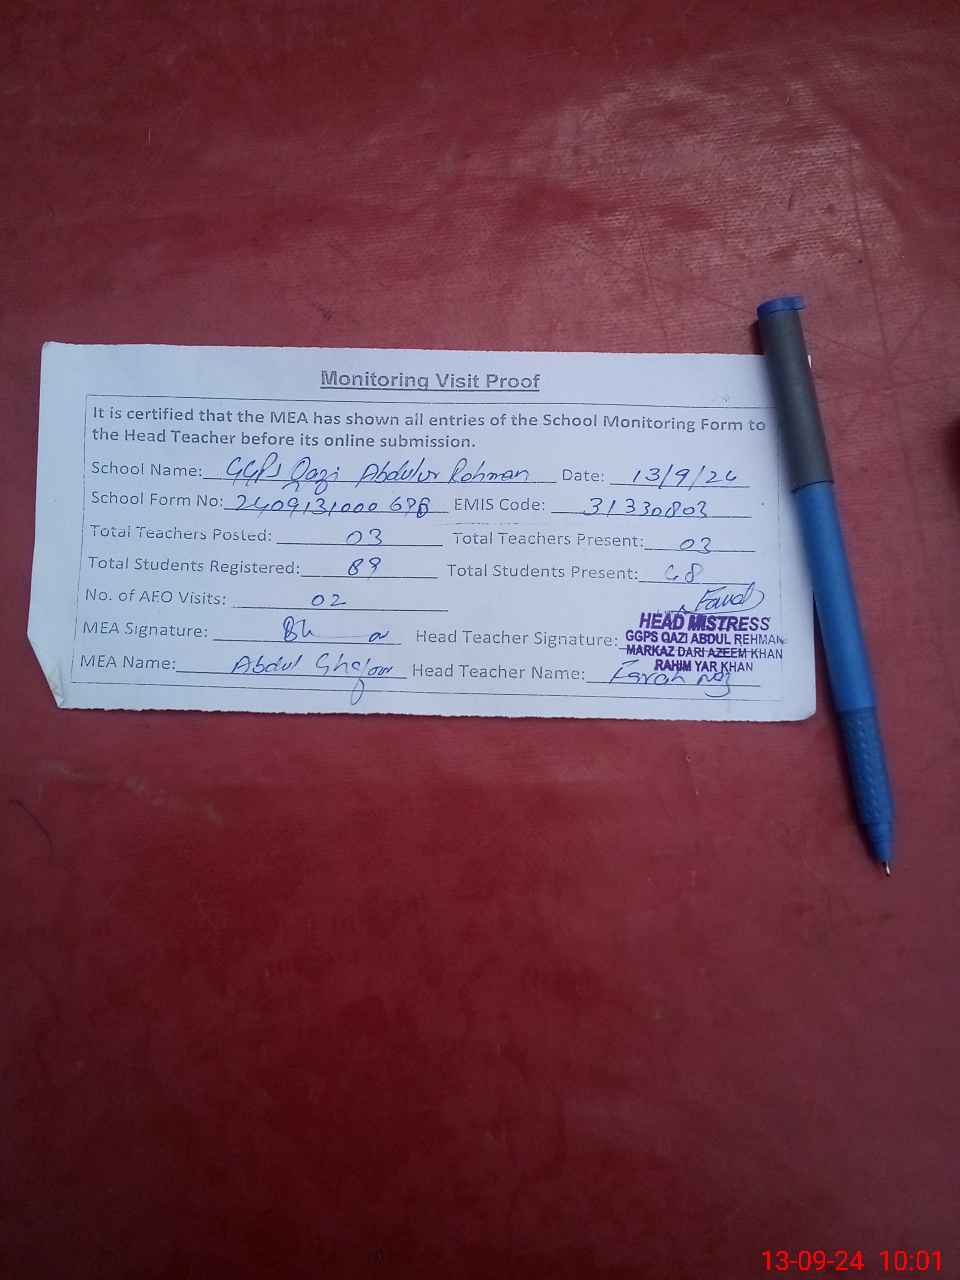 Monitoring Visit Proof
It is certified that the MEA has shown all entries of the School Monitoring Form to
the Head Teacher before its online submission.
School Name: GGPS Qazi Abdulur Rahman Date: 13/9/24
School Form No: EMIS Code: 31330803
Total Teachers Posted: 03 Total Teachers Present: 03
Total Students Registered: 89 Total Students Present: 68
No. of AEO Visits: 02
MEA Signature: Head Teacher Signature:
HEAD MISTRESS
GGPS QAZI ABDUL REHMAN
MARKAZ DARI AZEEM KHAN
RAHIM YAR KHAN
MEA Name: Abdul Ghafoor Head Teacher Name: Farah Naz
13-09-24 10:01